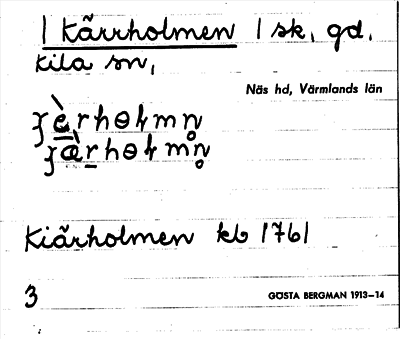 1 Kärrholmen 1 sk. gd.
Kila sn,
Näs hd, Värmlands län
Kiärholmen kb 1761
3
GÖSTA BERGMAN 1913–14